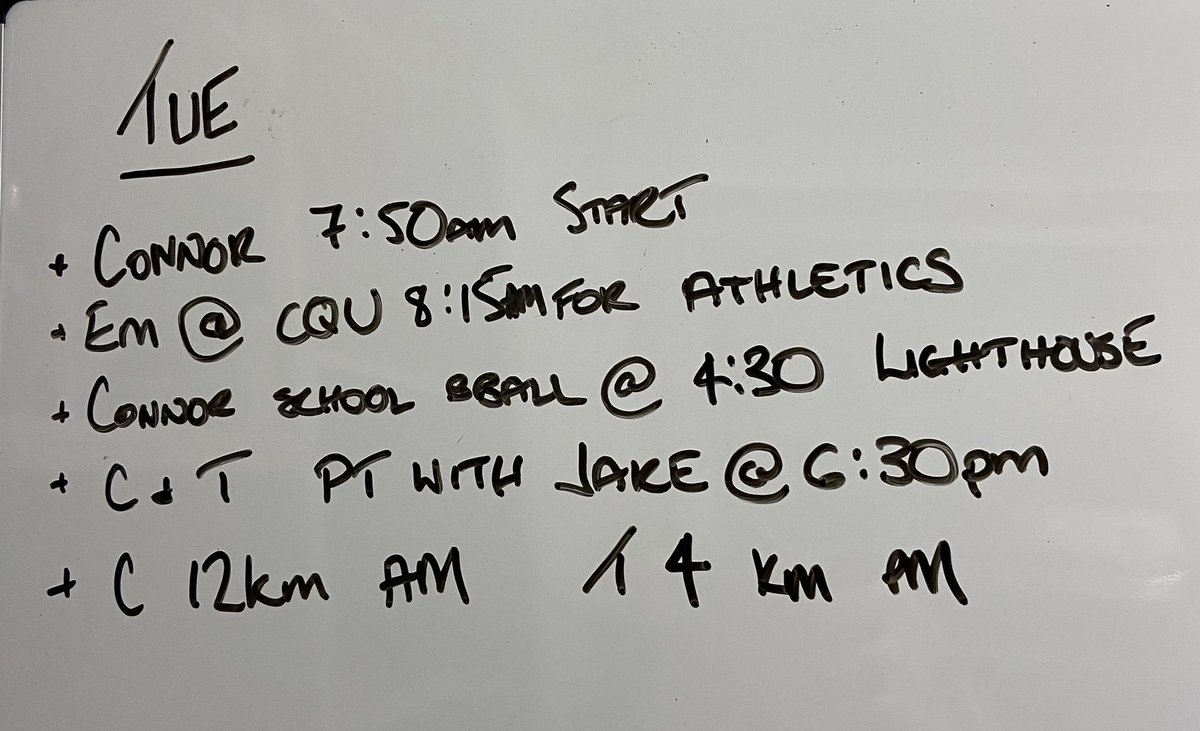 TUE
+ CONNOR 7:50am START
+ Em @ CQU 8:15am FOR ATHLETICS
+ CONNOR SCHOOL BBALL @ 4:30 LIGHTHOUSE
+ C & T PT WITH JAKE @ 6:30pm
+ C 12km AM 4 km AM